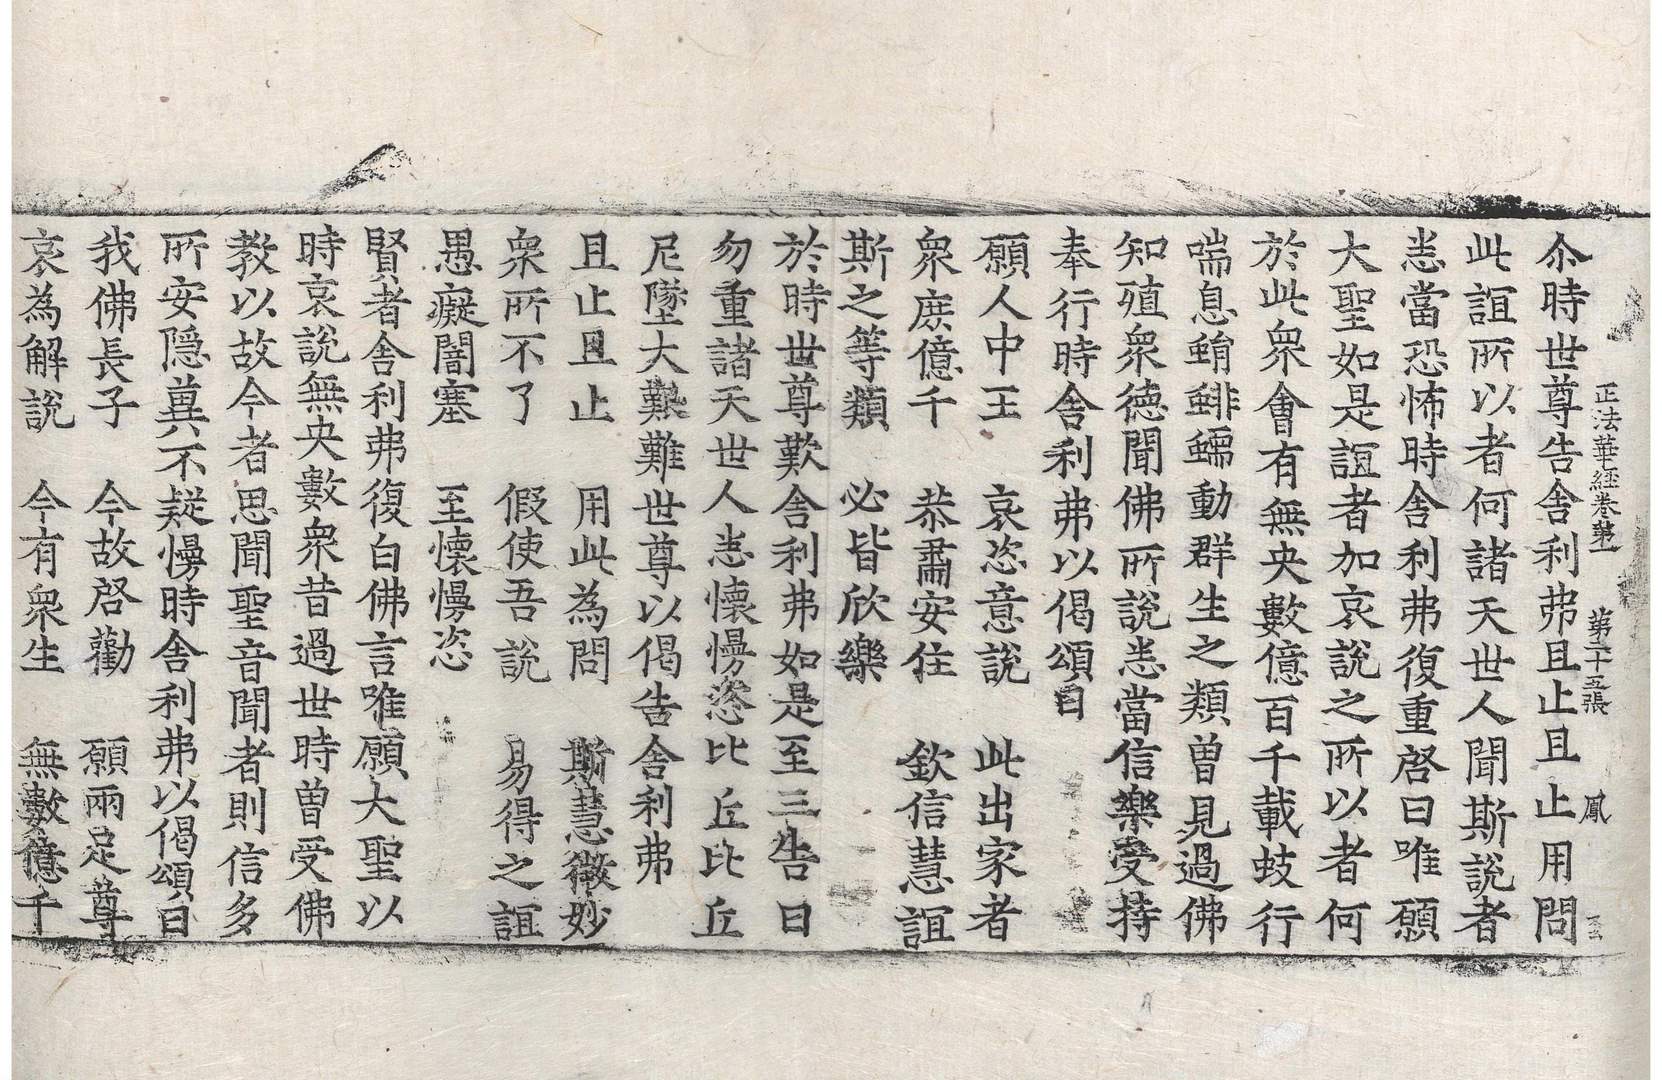 正法華經卷第一 第二十五張 鳳
尒時世尊告舍利弗且止且止用問
此誼所以者何諸天世人聞斯說者
悉當恐怖時舍利弗復重啓曰唯願
大聖如是誼者加哀說之所以者何
於此衆會有無央數億百千載蚑行
喘息蜎蜚蠕動群生之類曾見過佛
知殖衆德聞佛所說悉當信樂受持
奉行時舍利弗以偈頌曰
願人中王 哀恣意說 此出家者
衆庶億千 恭肅安住 欽信慧誼
斯之等類 必皆欣樂
於時世尊歎舍利弗如是至三告曰
勿重諸天世人悉懷慢恣比丘比丘
尼墜大艱難世尊以偈告舍利弗
且止且止 用此為問 斯慧微妙
衆所不了 假使吾說 易得之誼
愚癡闇塞 至懷慢恣
賢者舍利弗復白佛言唯願大聖以
時哀說無央數衆昔過世時曾受佛
教以故今者思聞聖音聞者則信多
所安隱兾不疑慢時舍利弗以偈頌曰
我佛長子 今故啓勸 願兩足尊
哀為解說 今有衆生 無數億千